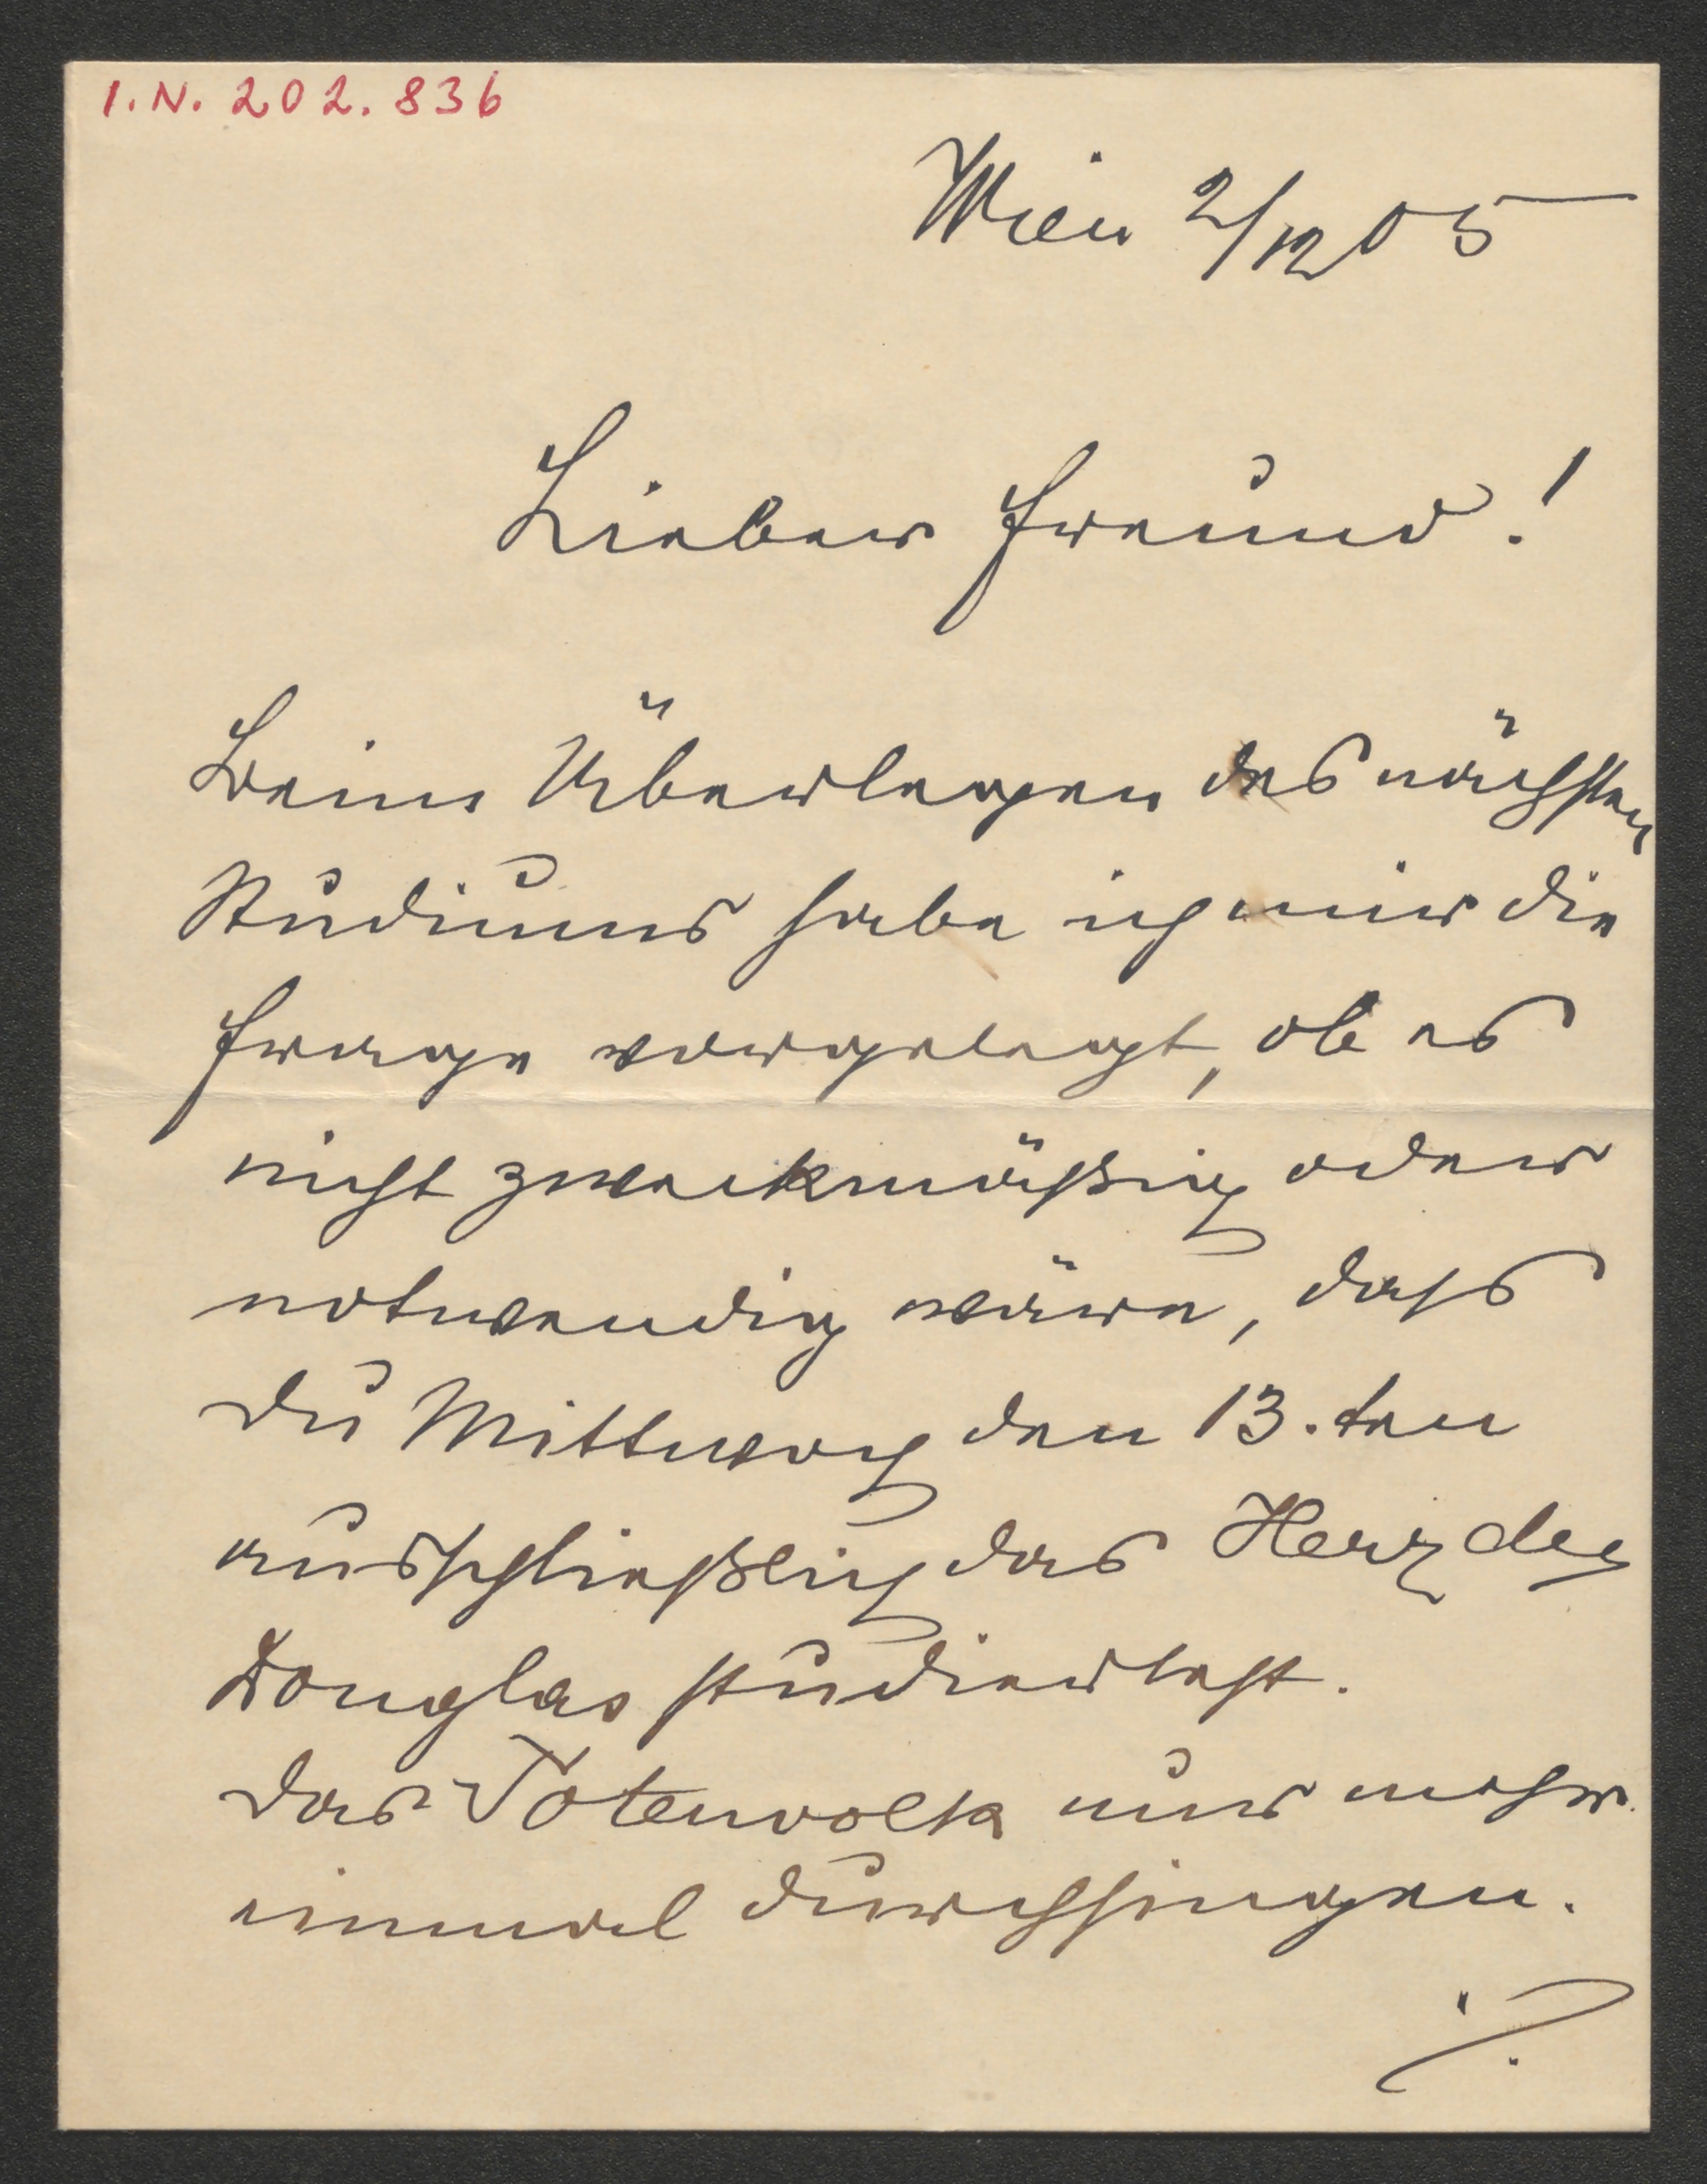 I.N. 202.836
Wien 2/12 05
Lieber Freund!
Beim Überlegen des nächsten
Studiums habe ich mir die
Frage vorgelegt, ob es
nicht zweckmäßig oder
notwendig wäre, dass
Du Mittwoch den 13.ten
ausschließlich das Herz des
Douglas studierlest.
Das Totenvolk nur mehr
einmal durchsingen.
./.